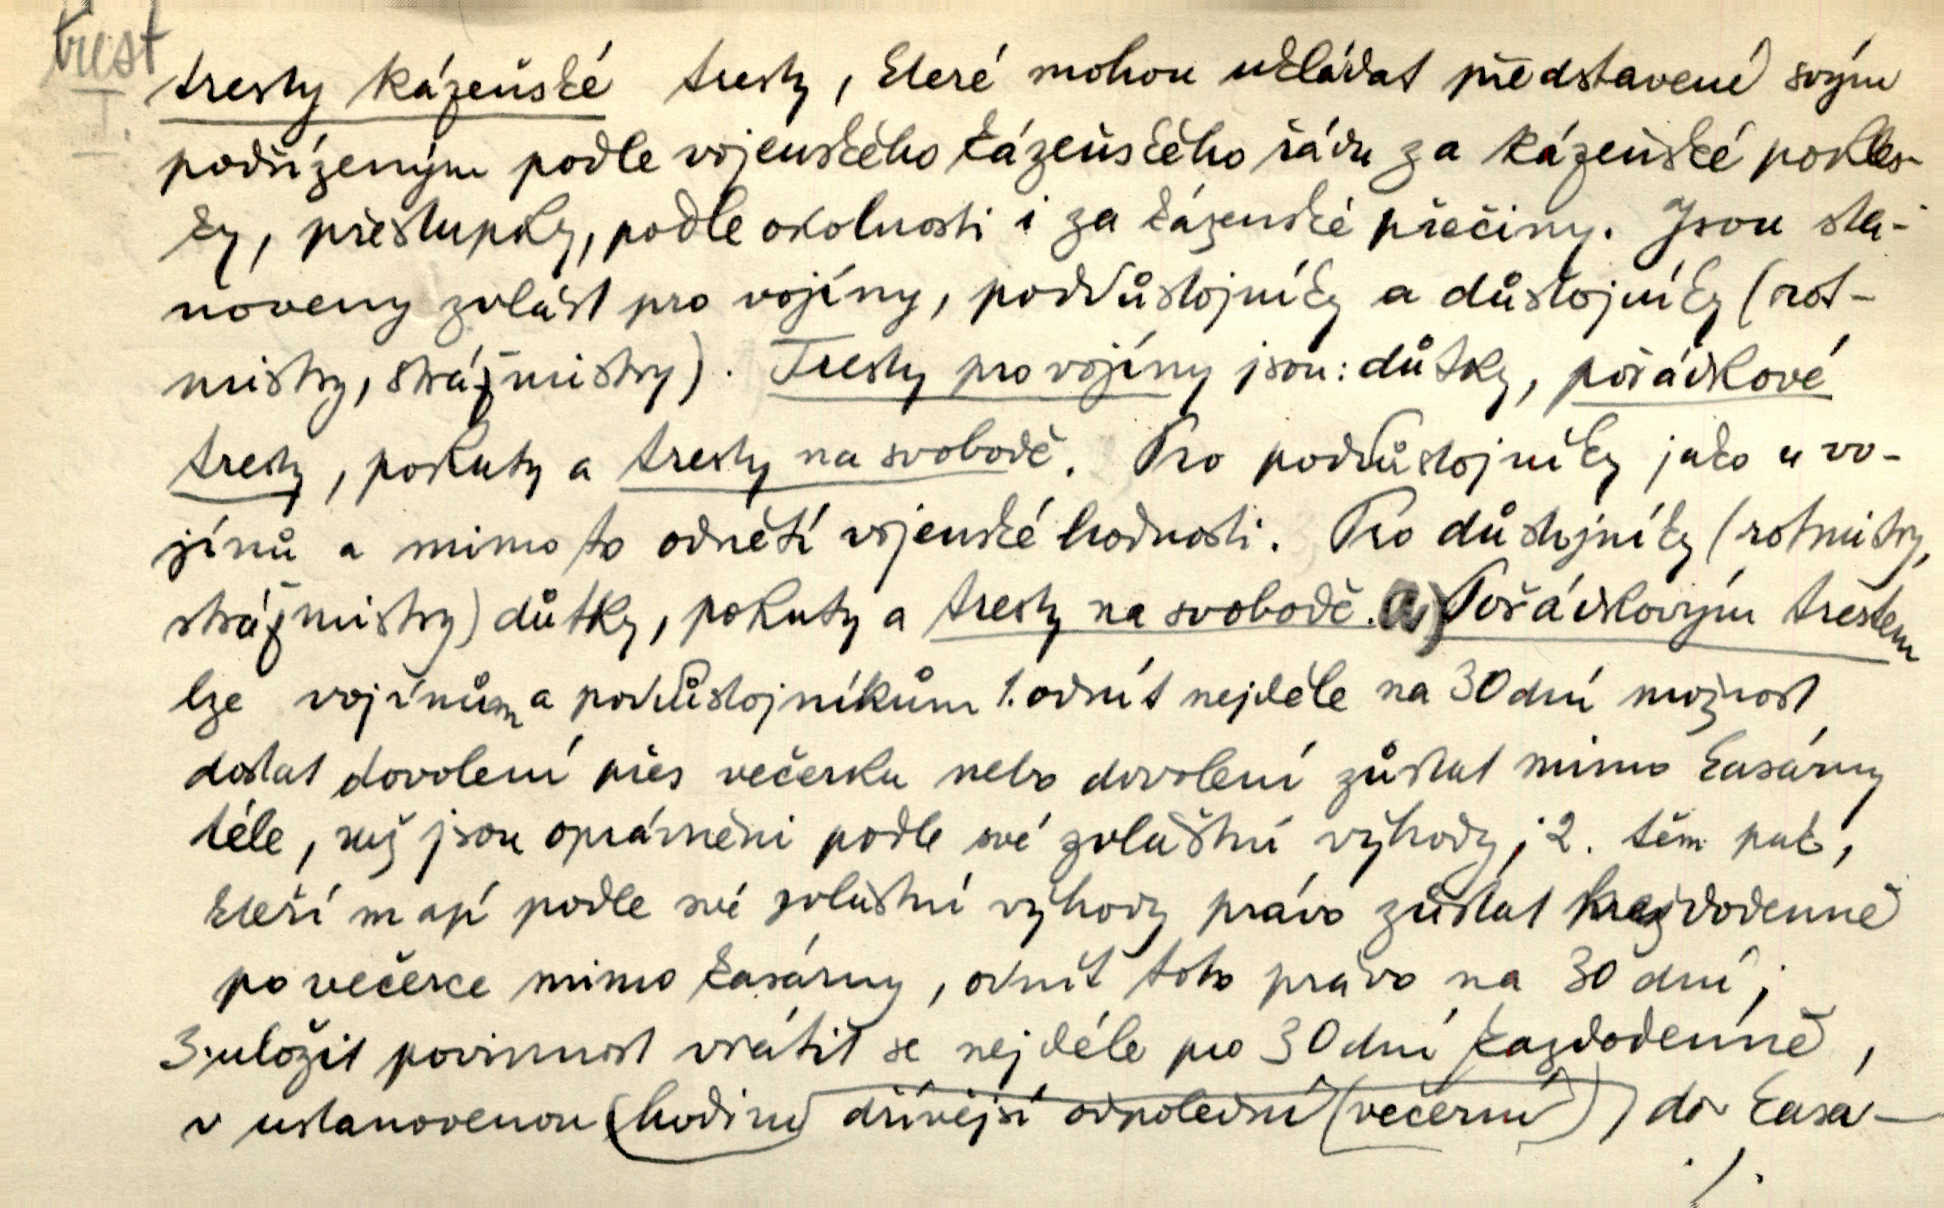 trest
I.
tresty kázeňské tresty, které mohou ukládat představené svým
podřízeným podle vojenského kázeňského řádu za kázeňské pokles-
ky, přestupky, podle okolnosti i za kázeňské přečiny. Jsou sta-
noveny zvlášt pro vojíny, poddůstojníky a důstojníky (rot-
mistry, strážmistry). Tresty pro vojíny jsou: důtky, pořádkové
tresty, pokuty a tresty na svobodě. Pro poddůstojníky jako u vo-
jínů a mimo to odnětí vojenské hodnosti. Pro důstojníky (rotmistry,
strážmistry) důtky, pokuty a tresty na svobodě. a) Pořádkovým trestem
lze vojínům a poddůstojníkům 1. odnít nejdéle na 30 dní možnost
dostat dovolení přes večerku nebo dovolení zůstat mimo kasárny
déle, než jsou oprávněni podle své zvláštní výhody; 2. těm pak,
kteří mají podle své zvláštní výhody právo zůstat každodenně
po večerce mimo kasárny, odnít toto právo na 30 dní;
3. uložit povinnost vrátit se nejdéle po 30 dní každodenně,
v ustanovenou (hodinu dřívější odpolední (večerní)) do kasá-
./.